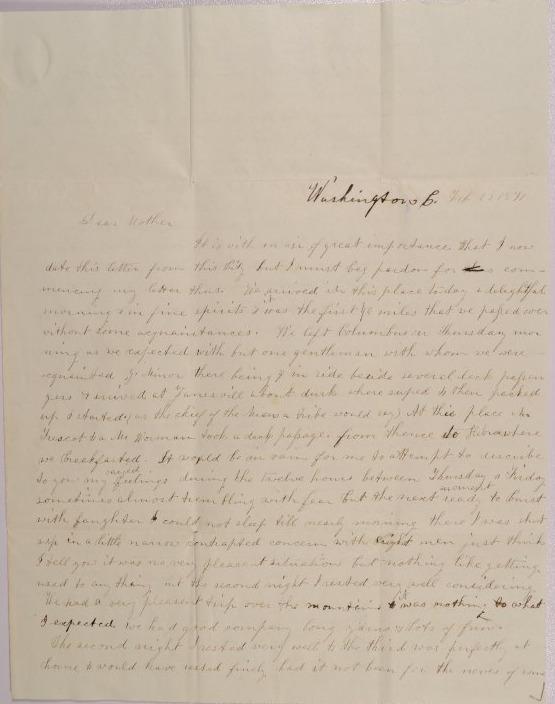 Washington C. Feb
Dear Mother
It is with an air of great importance that I now
date this letter from this City but I must beg pardon for as com-
mencing my letter thus. We arrived in this place today a delightful
morning & in fine spirits it was the first miles that we passed over
without some acquaintances. We left Columbus on Thursday mor
ning as we expected with but one gentleman with whom we were
acquainted Minor there being 9 in side beside several deck passen
gers & arrived at Zanesvill about dark where suped & then packed
up & started (as the chief of the tribe would say) At this place Mr
Trescot & a Mr Worman took a deck passage from thence to where
we breakfasted. It would be in vain for me to attempt to describe
to you my varied feelings during the twelve hours between Thursday & Friday
sometimes almost trembling with fear but the next moment ready to burst
with laughter I could not sleep till nearly morning there I was shut
up in a little narrow contrapted concern with eight men just think
I tell you it was no very pleasant situation but nothing like getting
used to any thing out the second night I rested very well considering
We had a very pleasant trip over the mountains it was nothing to what
I expected we had good company long yarns & lots of fun.
The second night I rested very well & the third was perfectly at
home & would have rested finely had it not been for the nerves of some